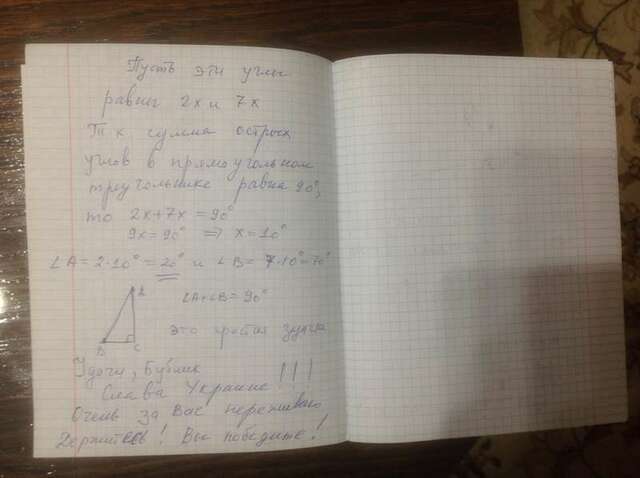 Пусть эти углы
равны 2x и 7x
Т к сумма острых
углов в прямоугольном
треугольнике равна 90°,
то 2x+7x = 90°
9x = 90° ⇒ x = 10°
∠A = 2·10° = 20° и ∠B = 7·10°=70°
A
∠A+∠B = 90°
это простая
B C
Удачи, Бублик
Слава Украине !!!
Очень за Вас переживаю
Держитесь! Вы победите!